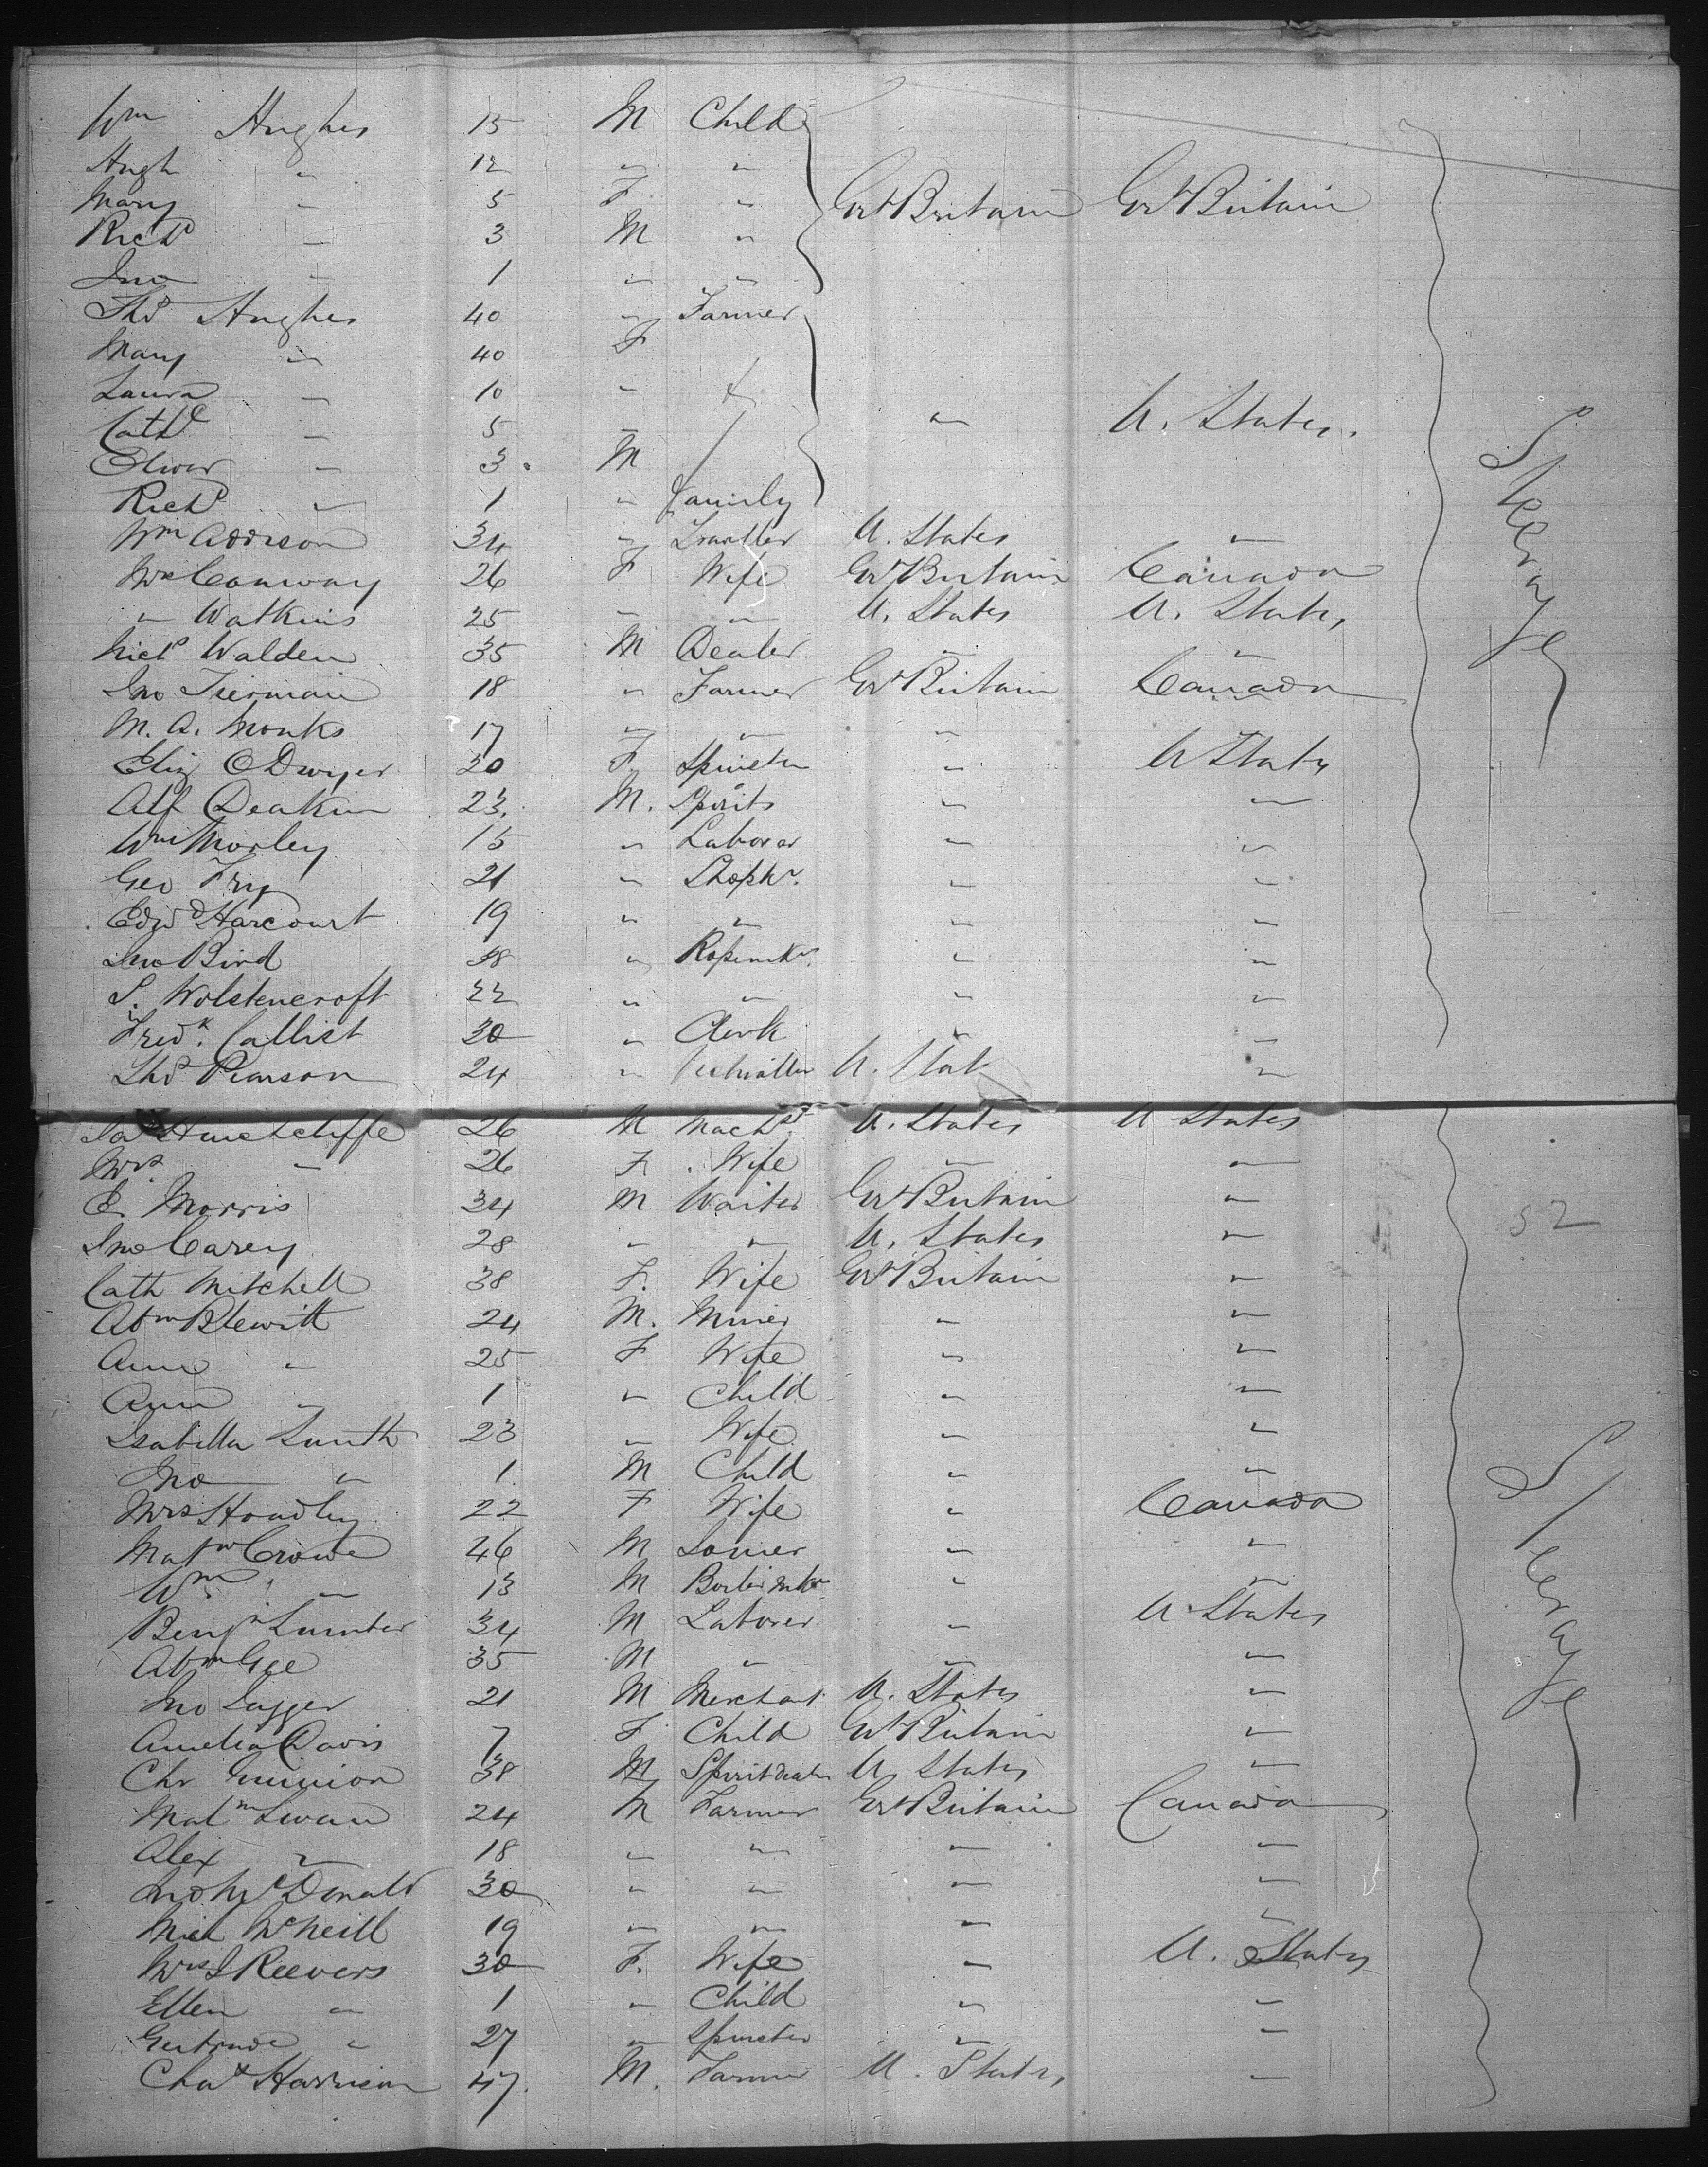 Wm Hughes 15 M Child
Hugh " 12 " "
Mary " 5 F "
Richd " 3 M " Grt Britain Grt Britain
Jno " 1 " "
Thos Hughes 40 " Farmer
Mary " 40 F
Laura " 10 "
Cathe " 5 " " U. States.
Oliver " 3 M
Richd " 1 " family
Steerage
Wm Addison 34 " Traveller U. States "
Mrs Conway 26 F Wife Grt Britain Canada
" Watkins 25 " " U. States U. States
Richd Walden 35 M Dealer " "
Jno Tiernain 18 " Farmer Grt Britain Canada
M. A. Monks 17 " " " "
Eliz O Dwyer 20 F. Spinster " U States
Alf Deakin 23 M. Spirits " "
Wm Morley 15 " Laborer " "
Geo Fry 21 " Shopkr. " "
Edwd Harcourt 19 " " " "
Jno Bird 38 " Ropemkr. " "
S. Wolstencroft 22 " " " "
Fredk. Callist 30 " Clerk " "
Thos Pearson 24 " U. Stat "
Jas Hinchcliffe 26 M Machst. U. States U States
Mrs " 26 F. Wife " "
E. Morris 34 M Waiter Grt Britain "
Jno Carey 28 " " U. States "
52
Cath Mitchell 38 F. Wife Grt Britain "
Abm Blewitt 24 M. Miner " "
Ann " 25 F Wife " "
Ann " 1 " Child " "
Isabella Smith 23 " Wife " "
Jno " 1 M Child " "
Mrs Hoadley 22 F Wife " Canada
Steerage
Matw Crowe 46 M " "
Wm " 13 M " "
Benjn Sumter 34 M Laborer " U States
Abm Gee 35 M " " "
Jno Jagger 21 M Merchant U. States "
Amelia Davis 7 F Child Grt Britain "
Chr Guinion 38 M Spirit dealer U. States "
Malm Swan 24 M Farmer Grt Britain Canada
Alex " 18 " " " "
Jno McDonald 30 " " " "
Mich McNeill 19 " " " "
Mrs J Reevers 30 F. Wife " U. States
Ellen " 1 " Child " "
Gertrude " 27 " Spinster " "
Chas Harrison 47. M. Farmer U. States "